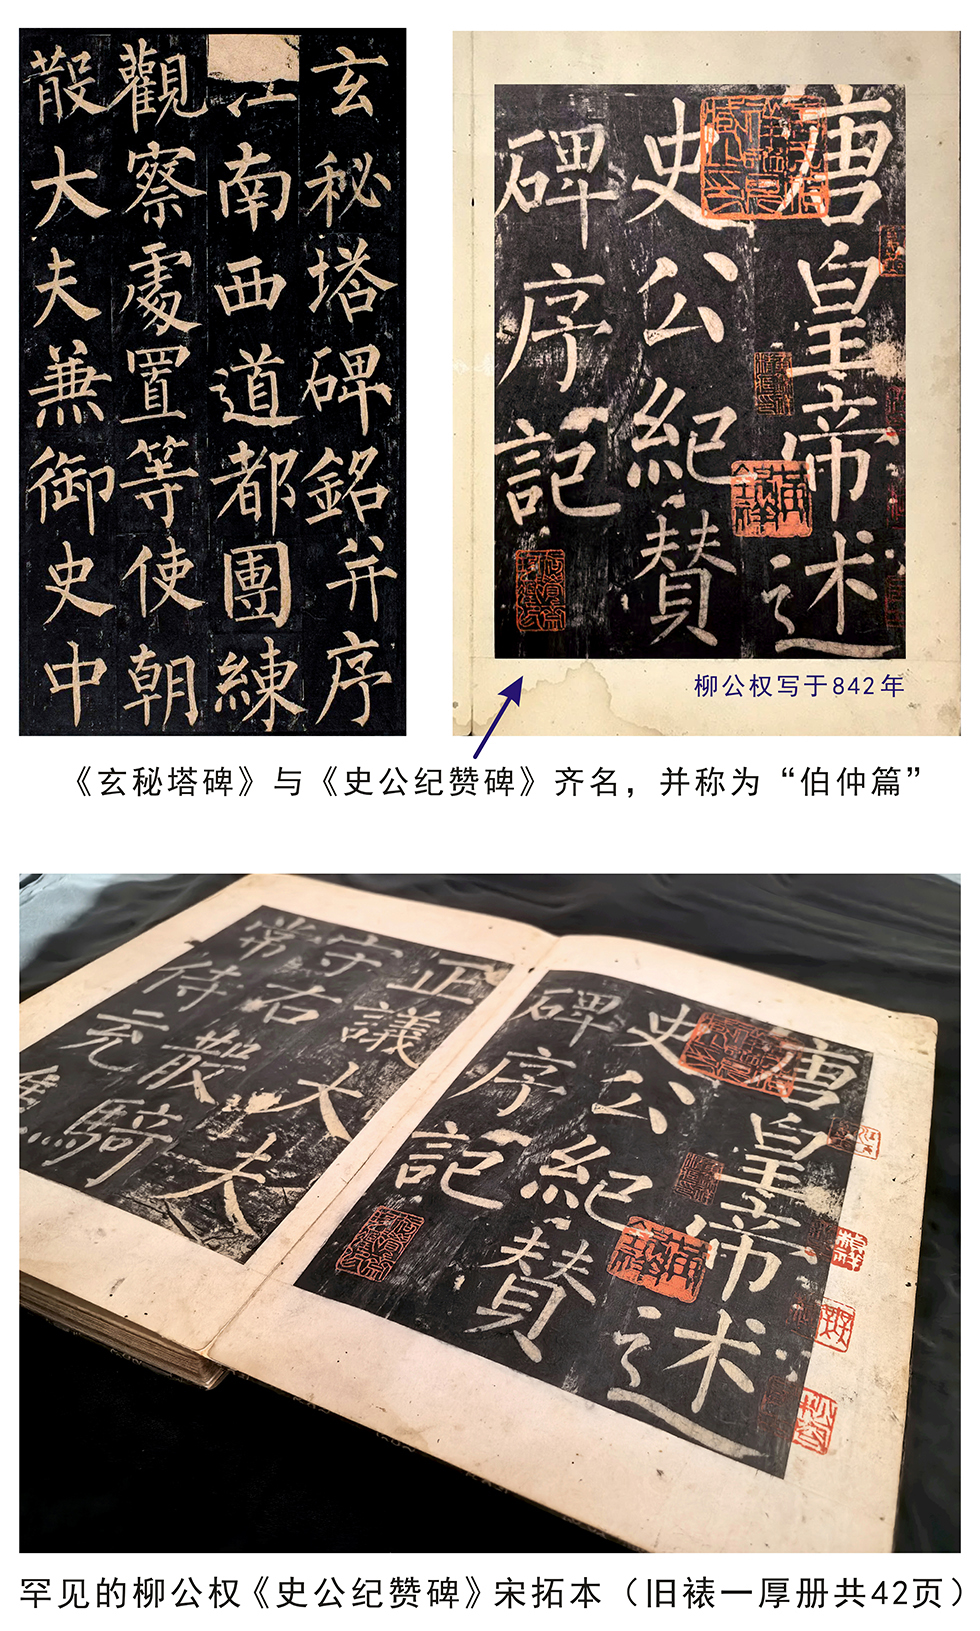 玄秘塔碑銘并序
江南西道都團練
觀察處置等使朝
散大夫兼御史中
唐皇帝述
史公紀贊
碑序記
柳公权写于842年
《玄秘塔碑》与《史公纪赞碑》齐名，并称为“伯仲篇”
唐皇帝述
史公紀贊
碑序記
正議大夫
守右散騎
常侍充
罕见的柳公权《史公纪赞碑》宋拓本（旧裱一厚册共42页）